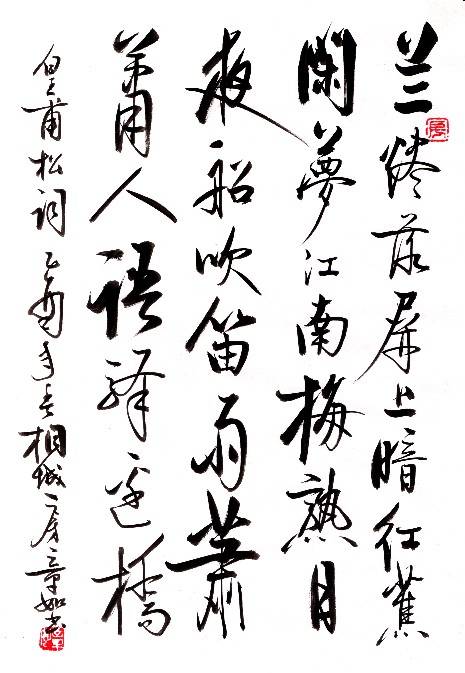 兰烬落屏上暗红蕉
闲夢江南梅熟日
夜船吹笛雨萧
萧人语驿边桥
皇甫松词 乙酉年 相城 章如书